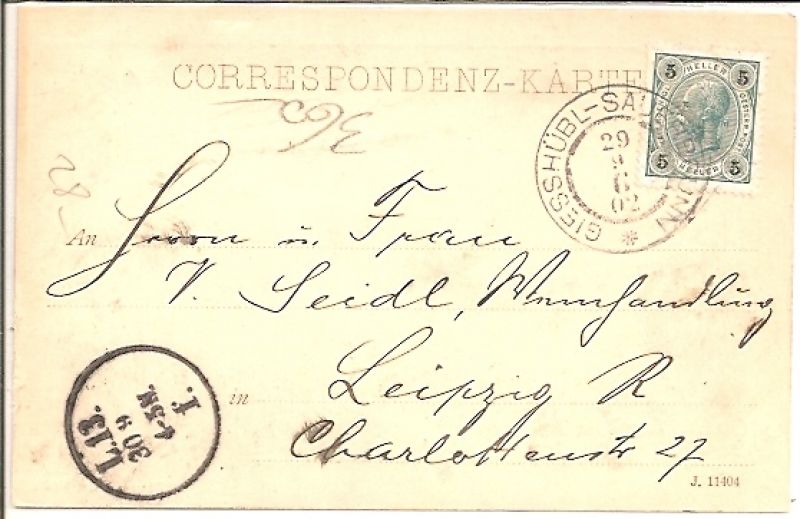 CORRESPONDENZ-KARTE
5 HELLER 5
5 HELLER 5
GIESSHÜBL-SAUERBRUNN
29
02
362
28-
An Herrn u. Frau
V. Seidl, Weinhandlung
in Leipzig R
Charlottenstr 27
L.13.
30 9
4-5N.
J. 11404